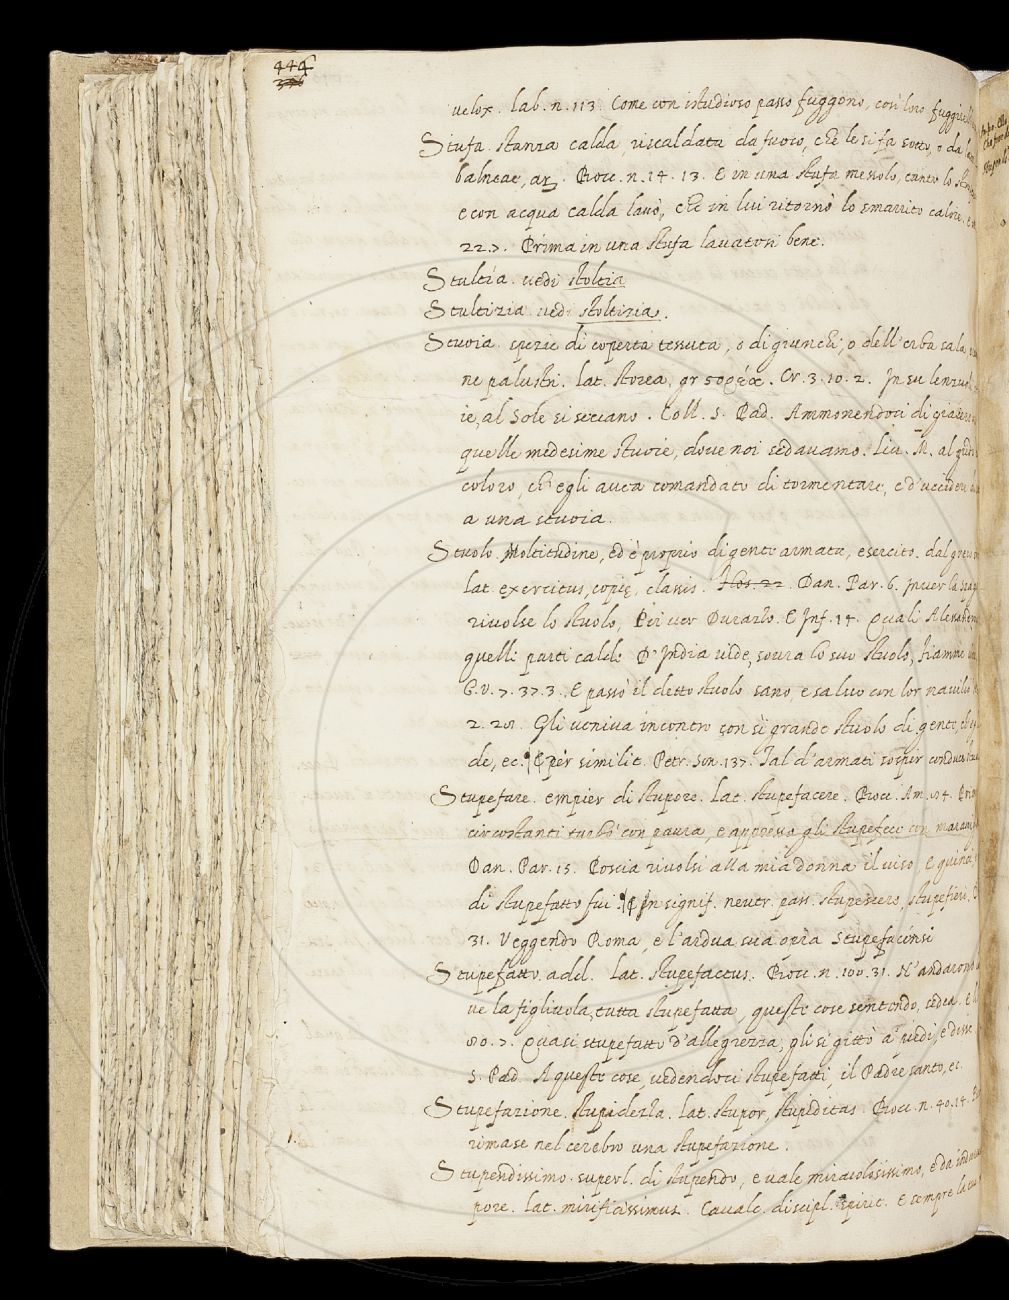 444
velox. lab. n. 113. Come con istudioso passo fuggono, così loro
Stufa. stanza calda, riscaldata da fuoco, che le si fa sotto, o da
balneae, ar. Bocc. n. 14. 13. E in una stufa messolo, tanto lo
e con acqua calda lavò, che in lui ritornò lo smarrito calore.
22. 7. Prima in una stufa lavatosi bene.
Stultía. vedi stoltia
Stultizia. vedi stoltizia.
Stuoia. spezie di coperta tessuta, o di giunchi, o dell'erba sala,
ne palustri. Lat. storea, gr. Cr. 3. 10. 2. In su
ie, al Sole si seccano. Coll. S. Pad. Ammonendoci di
quelle medesime stuoie, dove noi sedavamo. Liv. M. al
coloro, ch'egli avea comandato di tormentare, e d'uccidere
a una stuoia.
Stuolo. Moltitudine, ed è proprio di gente armata, esercito. dal greco
lat. exercitus, copię, classis. Dan. Par. 6. Inver la
rivolse lo stuolo, Poi ver Durazzo. E Inf. 14. Quali
quelli parti calde D'India vide, soura lo suo stuolo, fiamme
G. V. 7. 37. 3. E passò il detto stuolo sano, e salvo con lor navilio
2. 28. Gli veniva incontro con sì grande stuolo di gente,
de, ec. ¶ per similit. Petr. Son. 137. Tal d'armati sospir
Stupefare. empier di stupore. Lat. stupefacere. Bocc. Am. 84.
circostanti turbò con paura, e appresso gli stupefece con
Dan. Par. 15. Poscia rivolsi alla mia donna il viso, E quinci
di stupefatto fui. ¶ In signif. neutr. pass. stupescere, stupefieri.
31. Veggendo Roma, e l'ardua sua opra Stupefacénsi
Stupefatto. add. Lat. stupefactus. Bocc. n. 100. 31. N'andarono
ve la figlivola, tutta stupefatta, queste cose sentendo, sedea.
80. 7. Quasi stupefatto d'allegrezza, gli si gittò a' piedi, e disse
S. Pad. A queste cose, vedendoci stupefatti, il Padre santo, ec.
Stupefazione. stupidezza. Lat. stupor, stupiditas. Bocc. n. 40. 14.
rimase nel cerebro una stupefazione.
Stupendissimo. superl. di stupendo, e vale miracolosissimo, e da
pore. Lat. mirificissimus. Cavalc. discipl. spirit. E sempre